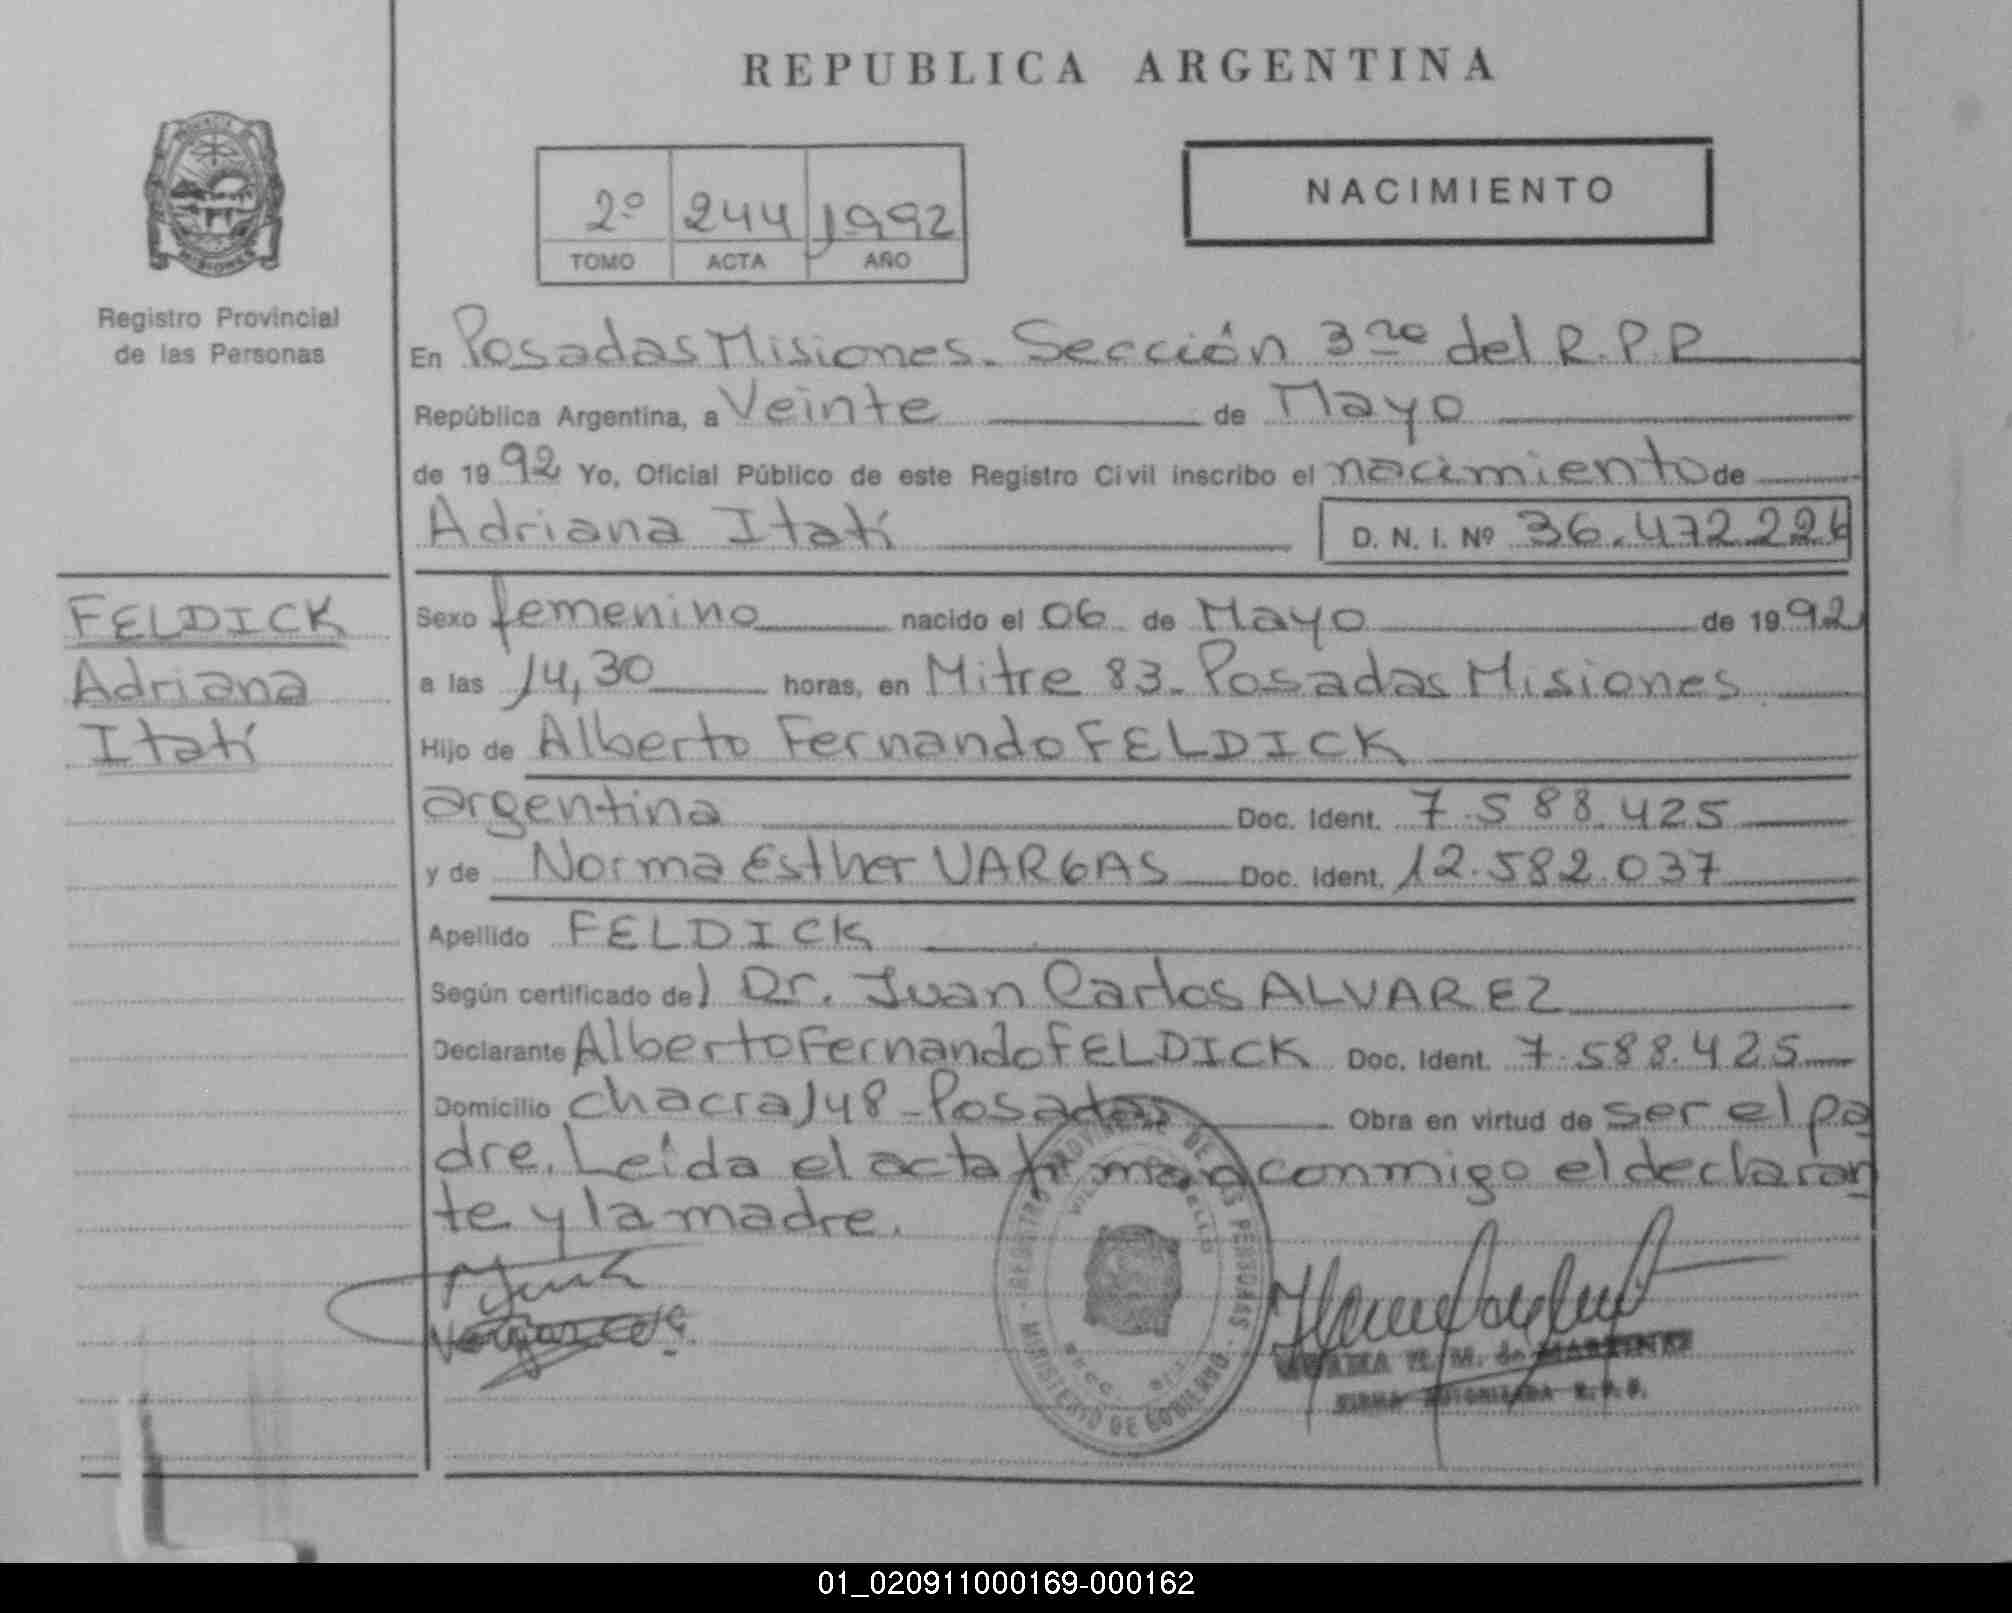 REPUBLICA ARGENTINA
NACIMIENTO
2º 244 1992
TOMO ACTA AÑO
MISIONES
Registro Provincial
de las Personas
En Posadas Misiones. Sección 3ra del R.P.P
República Argentina, a Veinte de Mayo
de 1992 Yo, Oficial Público de este Registro Civil inscribo el nacimiento de
Adriana Itatí D. N. I. Nº 36.472.226
FELDICK
Adriana
Itatí
Sexo femenino nacido el 06 de Mayo de 1992
a las 14,30 horas, en Mitre 83. Posadas Misiones
Hijo de Alberto Fernando FELDICK
argentina Doc. Ident. 7.588.425
y de Norma Esther VARGAS Doc. Ident. 12.582.037
Apellido FELDICK
Según certificado del Dr. Juan Carlos ALVAREZ
Declarante Alberto Fernando FELDICK Doc. Ident. 7.588.425
Domicilio chacra 148 - Posadas Obra en virtud de ser el pa
dre. Leída el acta firman conmigo el declaran
te y la madre.
REGISTRO PROVINCIAL DE LAS PERSONAS
MINISTERIO DE GOBIERNO
M. de MARTINEZ
FIRMA AUTORIZADA R.P.P.
01_020911000169-000162